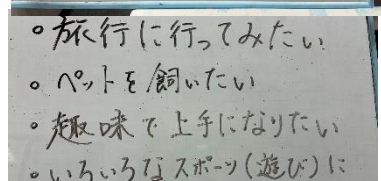 。旅行に行ってみたい
。ペットを飼いたい
・趣味で上手になりたい
・いろいろなスポーツ(遊び)に